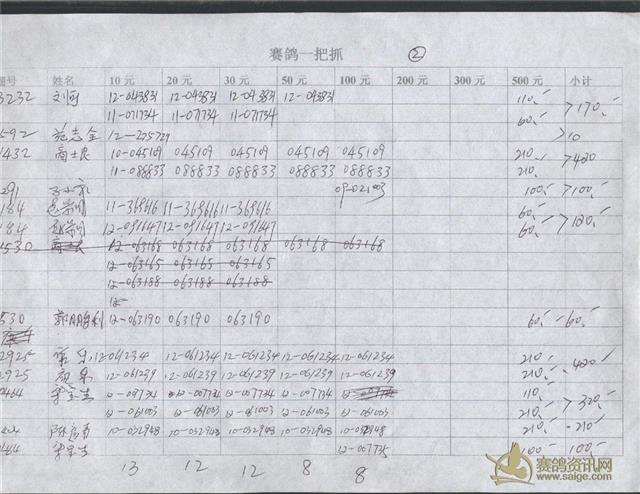 赛鸽一把抓 ②
号 姓名 10 元 20 元 30 元 50 元 100 元 200 元 300 元 500 元 小计
3232 刘河 12-043831 12-043831 12-043831 12-043831 110.- >170.-
11-071734 11-071734 11-071734 60.-
592 施志全 12-225729 >10
1432 商士良 10-045109 045109 045109 045109 045109 210.- >420
11-088833 088833 088833 088833 088833 210.-
291 09-021003 100.- >100.-
184 11-368616 11-368616 11-368616 60.- >120.-
184 12-091647 12-091647 12-091647 60.-
1530 12-063168 063168 063168 063168 063168
12-063165 063165 063165
12-063188 063188 063188
12-
530 郭鹏利 12-063190 063190 063190 60.- -60.-
2925 12-061234 12-061234 12-061234 12-061234 12-061234 210.- -420.-
2925 12-061239 12-061239 12-061239 12-061239 12-061239 210.-
0464 李宝玉 12-007734 12-007734 12-007734 12-007734 110.- >320.-
12-061003 12-061003 12-061003 12-061003 12-061003 210.-
10-032948 10-032948 10-032948 10-032948 10-032948 210.- -210.-
12-007735 100.- 100.-
13 12 12 8 8
赛鸽资讯网
www.saige.com